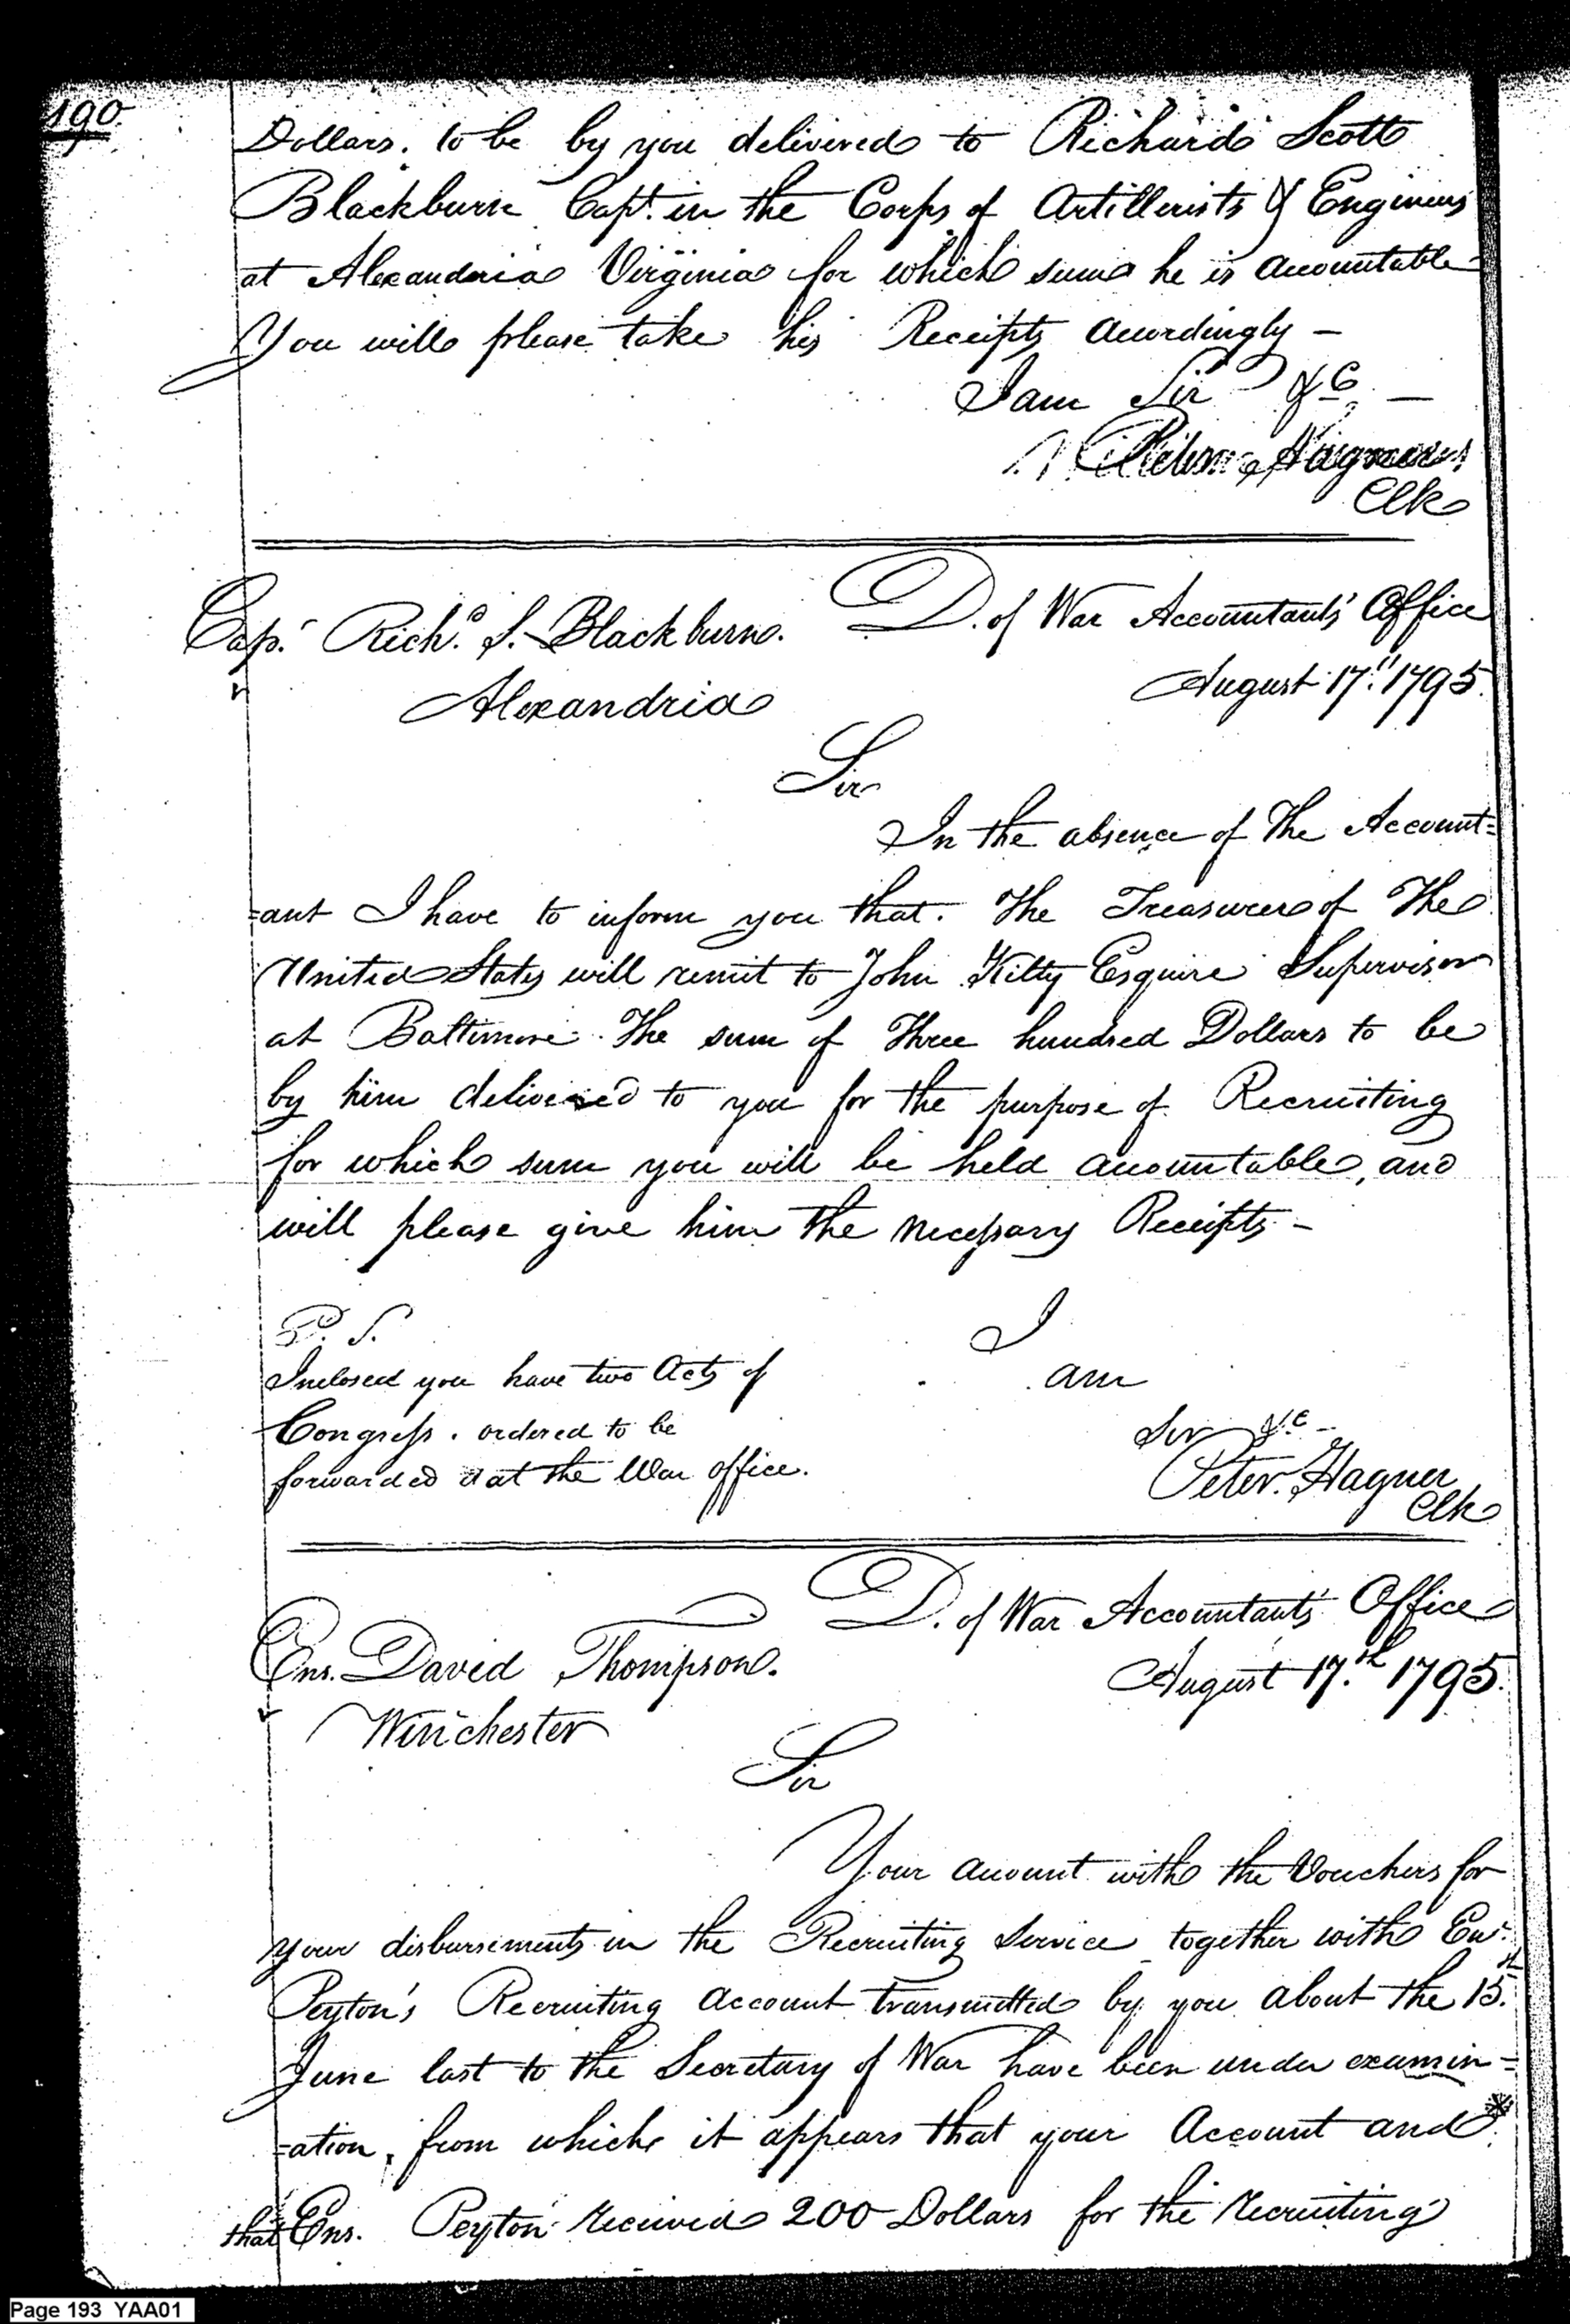 190
Dollars. to be by you delivered to Richard Scott
Blackburn Capt. in the Corps of Artillerists & Engineers
at Alexandria Virginia for which sum he is accountable
You will please take his Receipts accordingly -
I am Sir &c. -
Hagner
Clk
Cap.t Rich.d S. Blackburn. D. of War Accountants' Office
Alexandria August 17.th 1795.
Sir
In the absence of The Account=
=ant I have to inform you that. The Treasurer of The
United States will remit to John Kilty Esquire Supervisor
at Baltimore. The sum of Three hundred Dollars to be
by him delivered to you for the purpose of Recruiting
for which sum you will be held accountable, and
will please give him the necessary Receipts -
P. S.
Inclosed you have two Acts of
Congress. ordered to be
forwarded at the War office.
I
am
Sir &c -
Peter. Hagner
Clk
Ens. David Thompson. D. of War Accountants' Office
Winchester August 17.th 1795.
Sir
Your account with the Vouchers for
your disbursements in the Recruiting Service together with Ens.
Peyton's Recruiting Account transmitted by you about the 15.th
June last to the Secretary of War have been under examin=
=ation, from which it appears that your Account and *
that Ens. Peyton received 200 Dollars for the recruiting
Page 193 YAA01